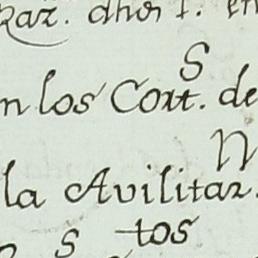 dhoſ
S
n los Cortt. de
N
la Avilitar.
s tos